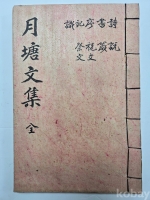 詩 說
書 箴
序 祝文
記 祭文
識
月塘文集 全
kobay